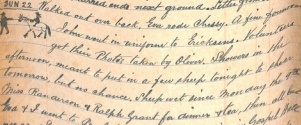 ends next ground. Letter from
JUN 22. Walked out over back. Em rode Chessy. A few
John went in uniform to Ericksons. Volunteers
got their Photos taken by Oliver. Showers in the
afternoon, meant to put in a few sheep tonight to shear
tomorrow, but no chance. Sheep wet since Monday the 9th
Miss Randerson & Ralph Grant for dinner & tea, then all
& I went to Gospel